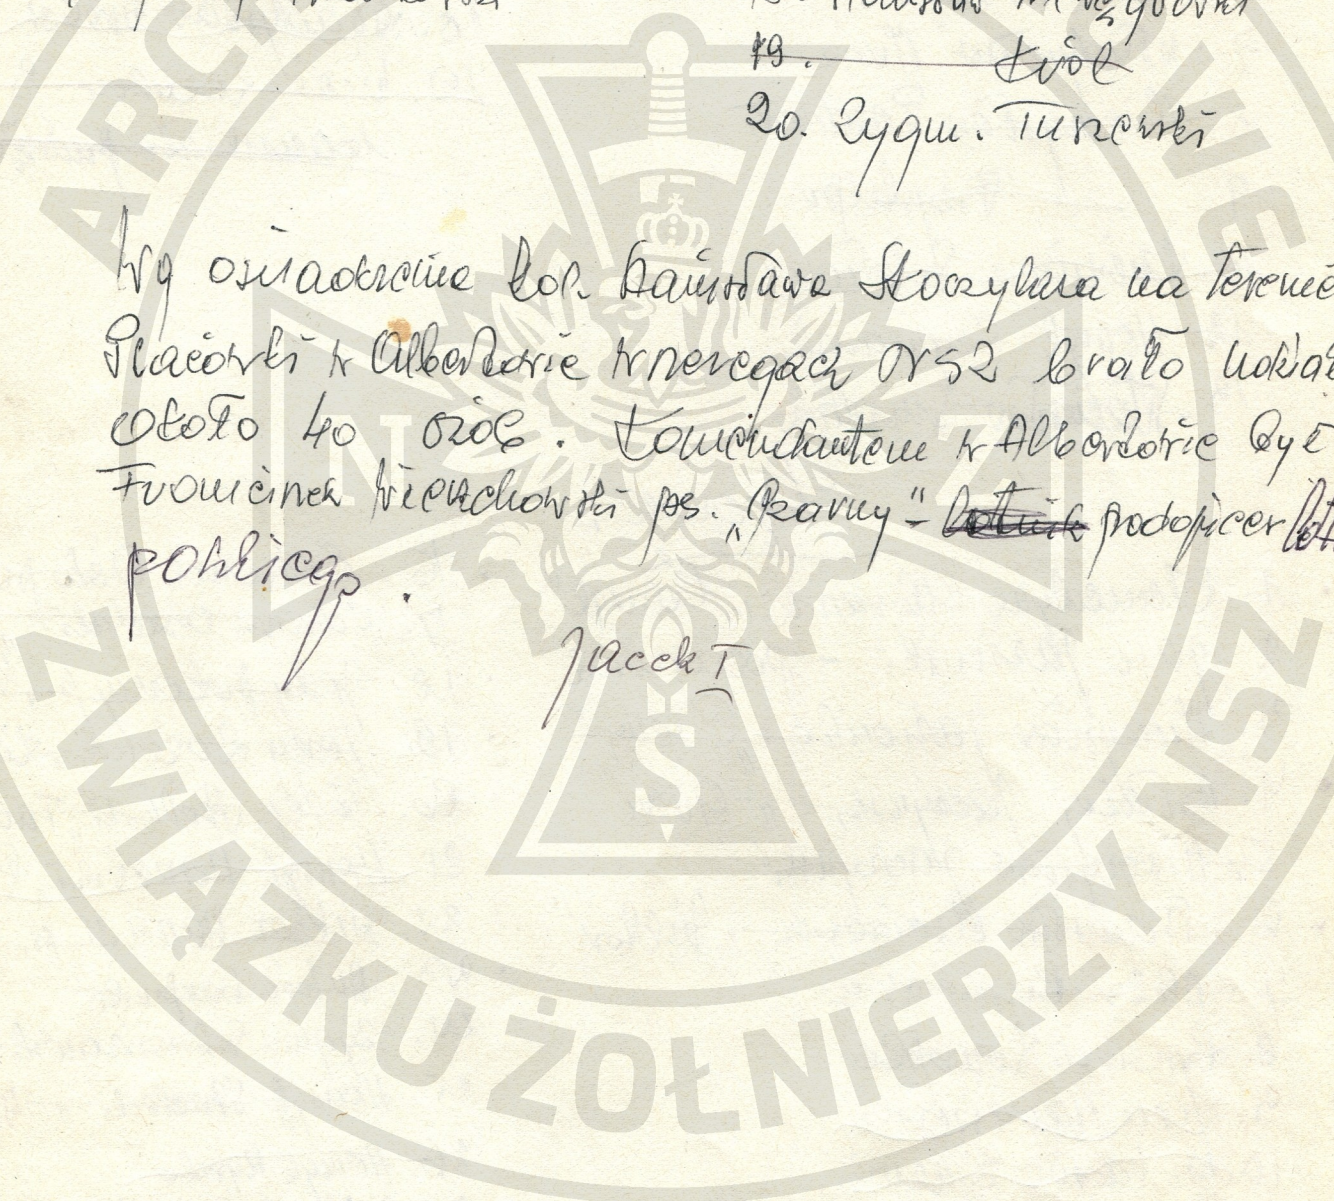 19. Król
20. Zygm. Tuszewski
Wg oświadczenia kol. Stanisława Stoczylasa na terenie
Placówki w Albertowie w szeregach NSZ brało udział
około 40 osób. Komendantem w Albertowie był
Franciszek Wierzchowski ps. "Czarny" - lotnik podoficer
polskiego.
Jacek I
ZWIĄZKU ŻOŁNIERZY NSZ
N
Z
S